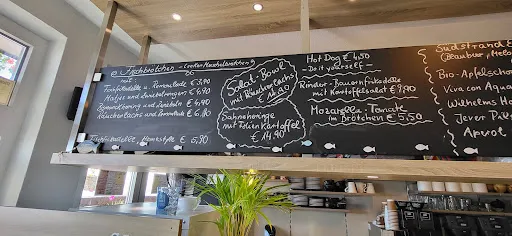 Fischbrötchen
mit:
Fischfrikadelle u. Remoulade € 3,90
Matjes und Zwiebelringen € 4,90
Bismarckhering und Zwiebeln € 4,90
Räucherlachs und Remoulade € 6,90
Fischfrikadelle, Hemkstyle € 5,90
Salat-Bowl
mit Räucherlachs
€ 14,90
Sahneheringe
mit Folienkartoffel
€ 14,90
Hot Dog € 4,50
- Do it yourself -
Rinder-Bauernfrikadelle
mit Kartoffelsalat € 9,90
Mozzarella-Tomate
im Brötchen € 5,50
Südstrand
Bio-Apfelschorle
Viva con Aqua
Wilhelms
Jever Pils
Aperol